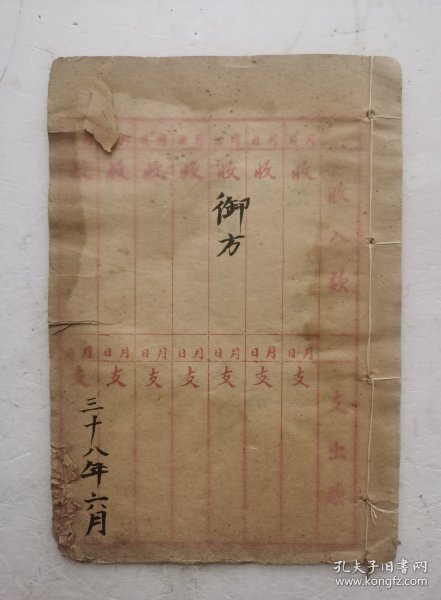 收入款
支出款
月日 月日 月日 月日 月日
收 收 收 收 收 收
月日 月日 月日 月日 月日 月日 月日
支 支 支 支 支 支 支
御方
三十八年六月
孔夫子旧书网
www.kongfz.com